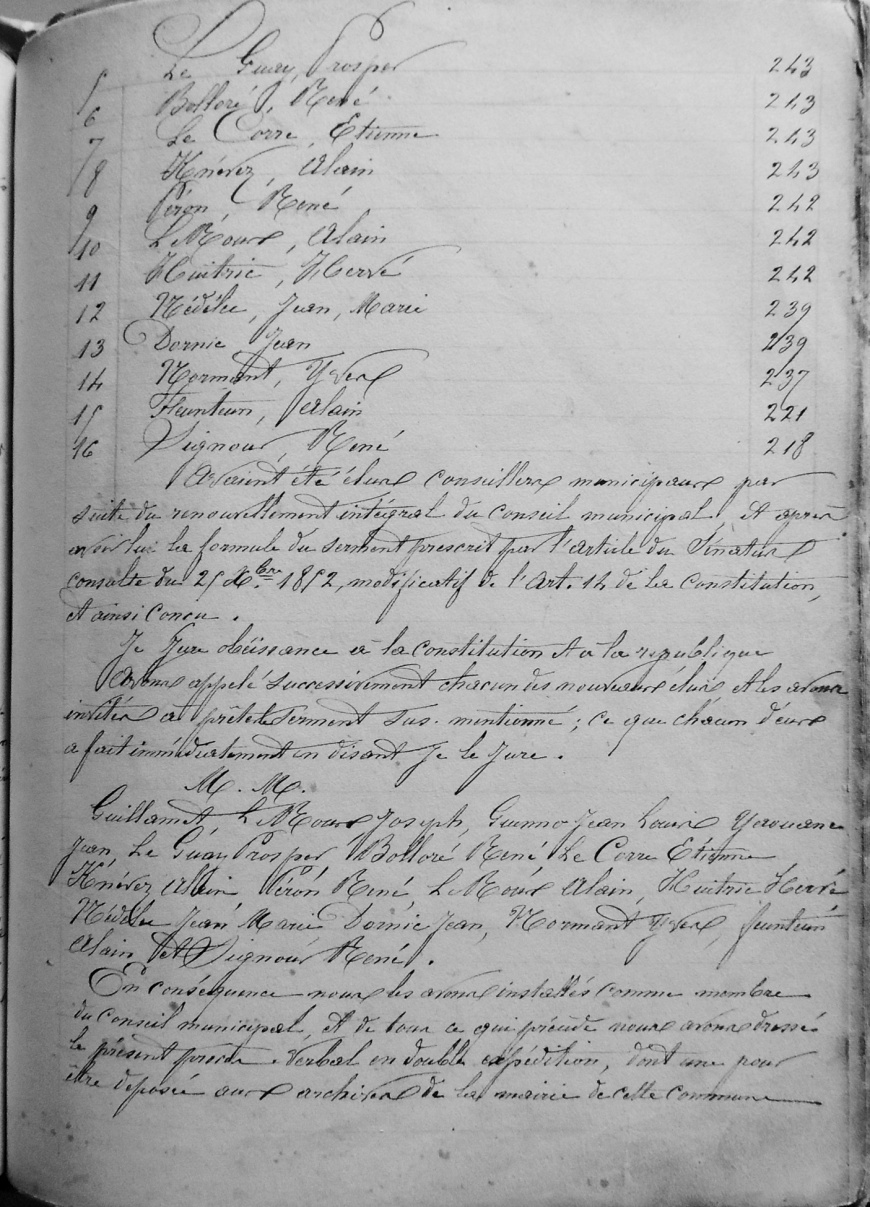 5 Le Guay, Prosper 243
6 Bolloré, René 243
7 Le Corre, Etienne 243
8 Knévez, Alain 243
9 Péron René 242
10 Le Moux, Alain 242
11 Huitric, Hervé 242
12 Nédélec, Jean, Marie 239
13 Dornic Jean 239
14 Normant, Yves 237
15 Feunteun, Alain 221
16 Signour, René 218
avaient été élus conseillers municipaux par
suite du renouvellement intégral du conseil municipal, et après
avoir lu la formule du serment prescrit par l'article du Sénatus
consulte du 25 Xbre 1852, modificatif de l'art. 14 de la Constitution,
et ainsi concu.
Je Jure obéissance à la constitution et a la republique
avons appelé successivement chacun des nouveaux élus et les avons
invités à prêter le serment sus-mentionné ; ce que chacun d'eux
a fait immédiatement en disant Je le Jure.
M. M.
Guillamet, Le Moux Joseph, Guenno Jean Louis Yaouanc
Jean, Le Guay Prosper Bolloré René Le Corre Etienne
Knévez Alain Péron René, Le Moux Alain, Huitric Hervé
Nédélec Jean Marie Dornic Jean, Normant Yves, feunteun
Alain, et Signour René.
En conséquence nous les avons installés comme membre
du conseil municipal, et de tous ce qui précède nous avons dressé
le présent procès-verbal en double expédition, dont une pour
être déposée aux archives de la mairie de cette commune